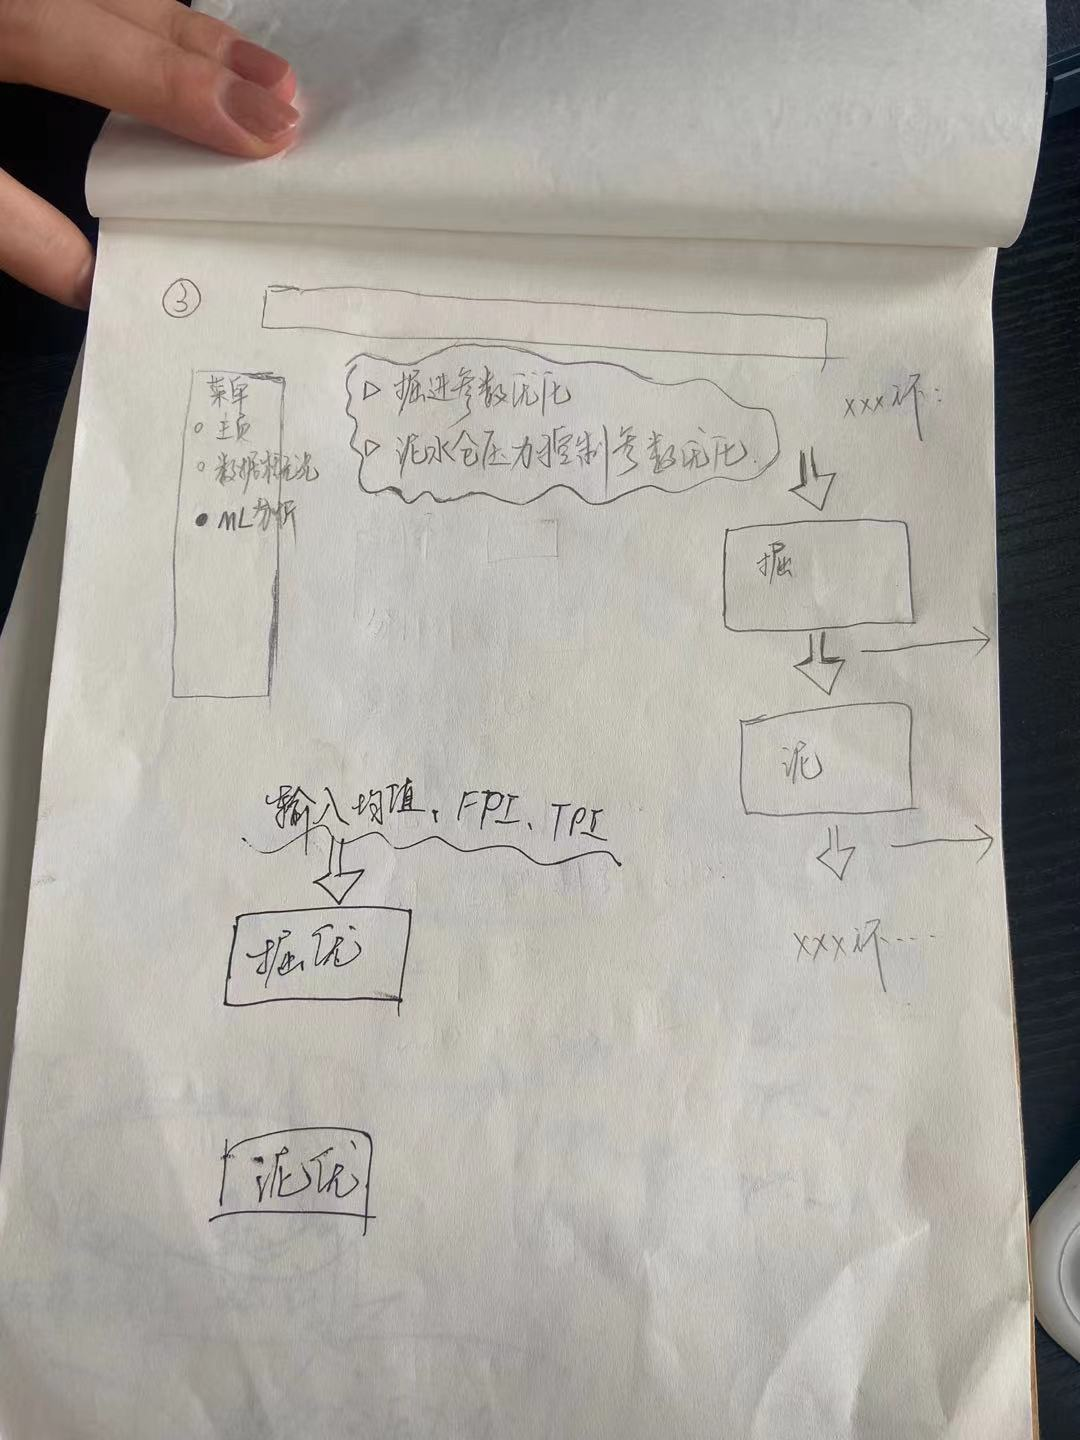 ③
菜单
○ 主页
○ 数据概况
● ML分析
▷ 掘进参数优化
▷ 泥水仓压力控制参数优化
xxx环:
掘
泥
xxx环....
输入均值、FPI、TPI
掘优
泥优